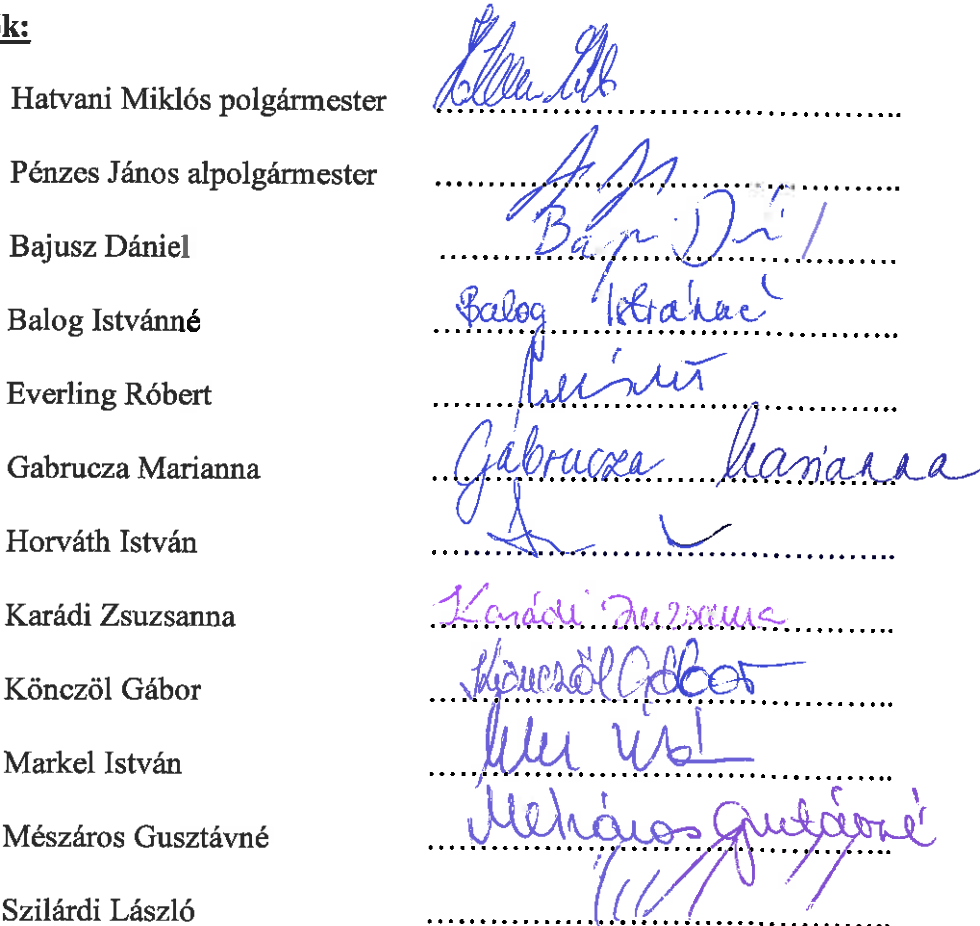 ők:
Hatvani Miklós polgármester
Pénzes János alpolgármester
Bajusz Dániel
Balog Istvánné Balog Istvánné
Everling Róbert
Gabrucza Marianna Gabrucza Marianna
Horváth István
Karádi Zsuzsanna Karádi Zsuzsanna
Könczöl Gábor Könczöl Gábor
Markel István
Mészáros Gusztávné Mészáros Gusztávné
Szilárdi László